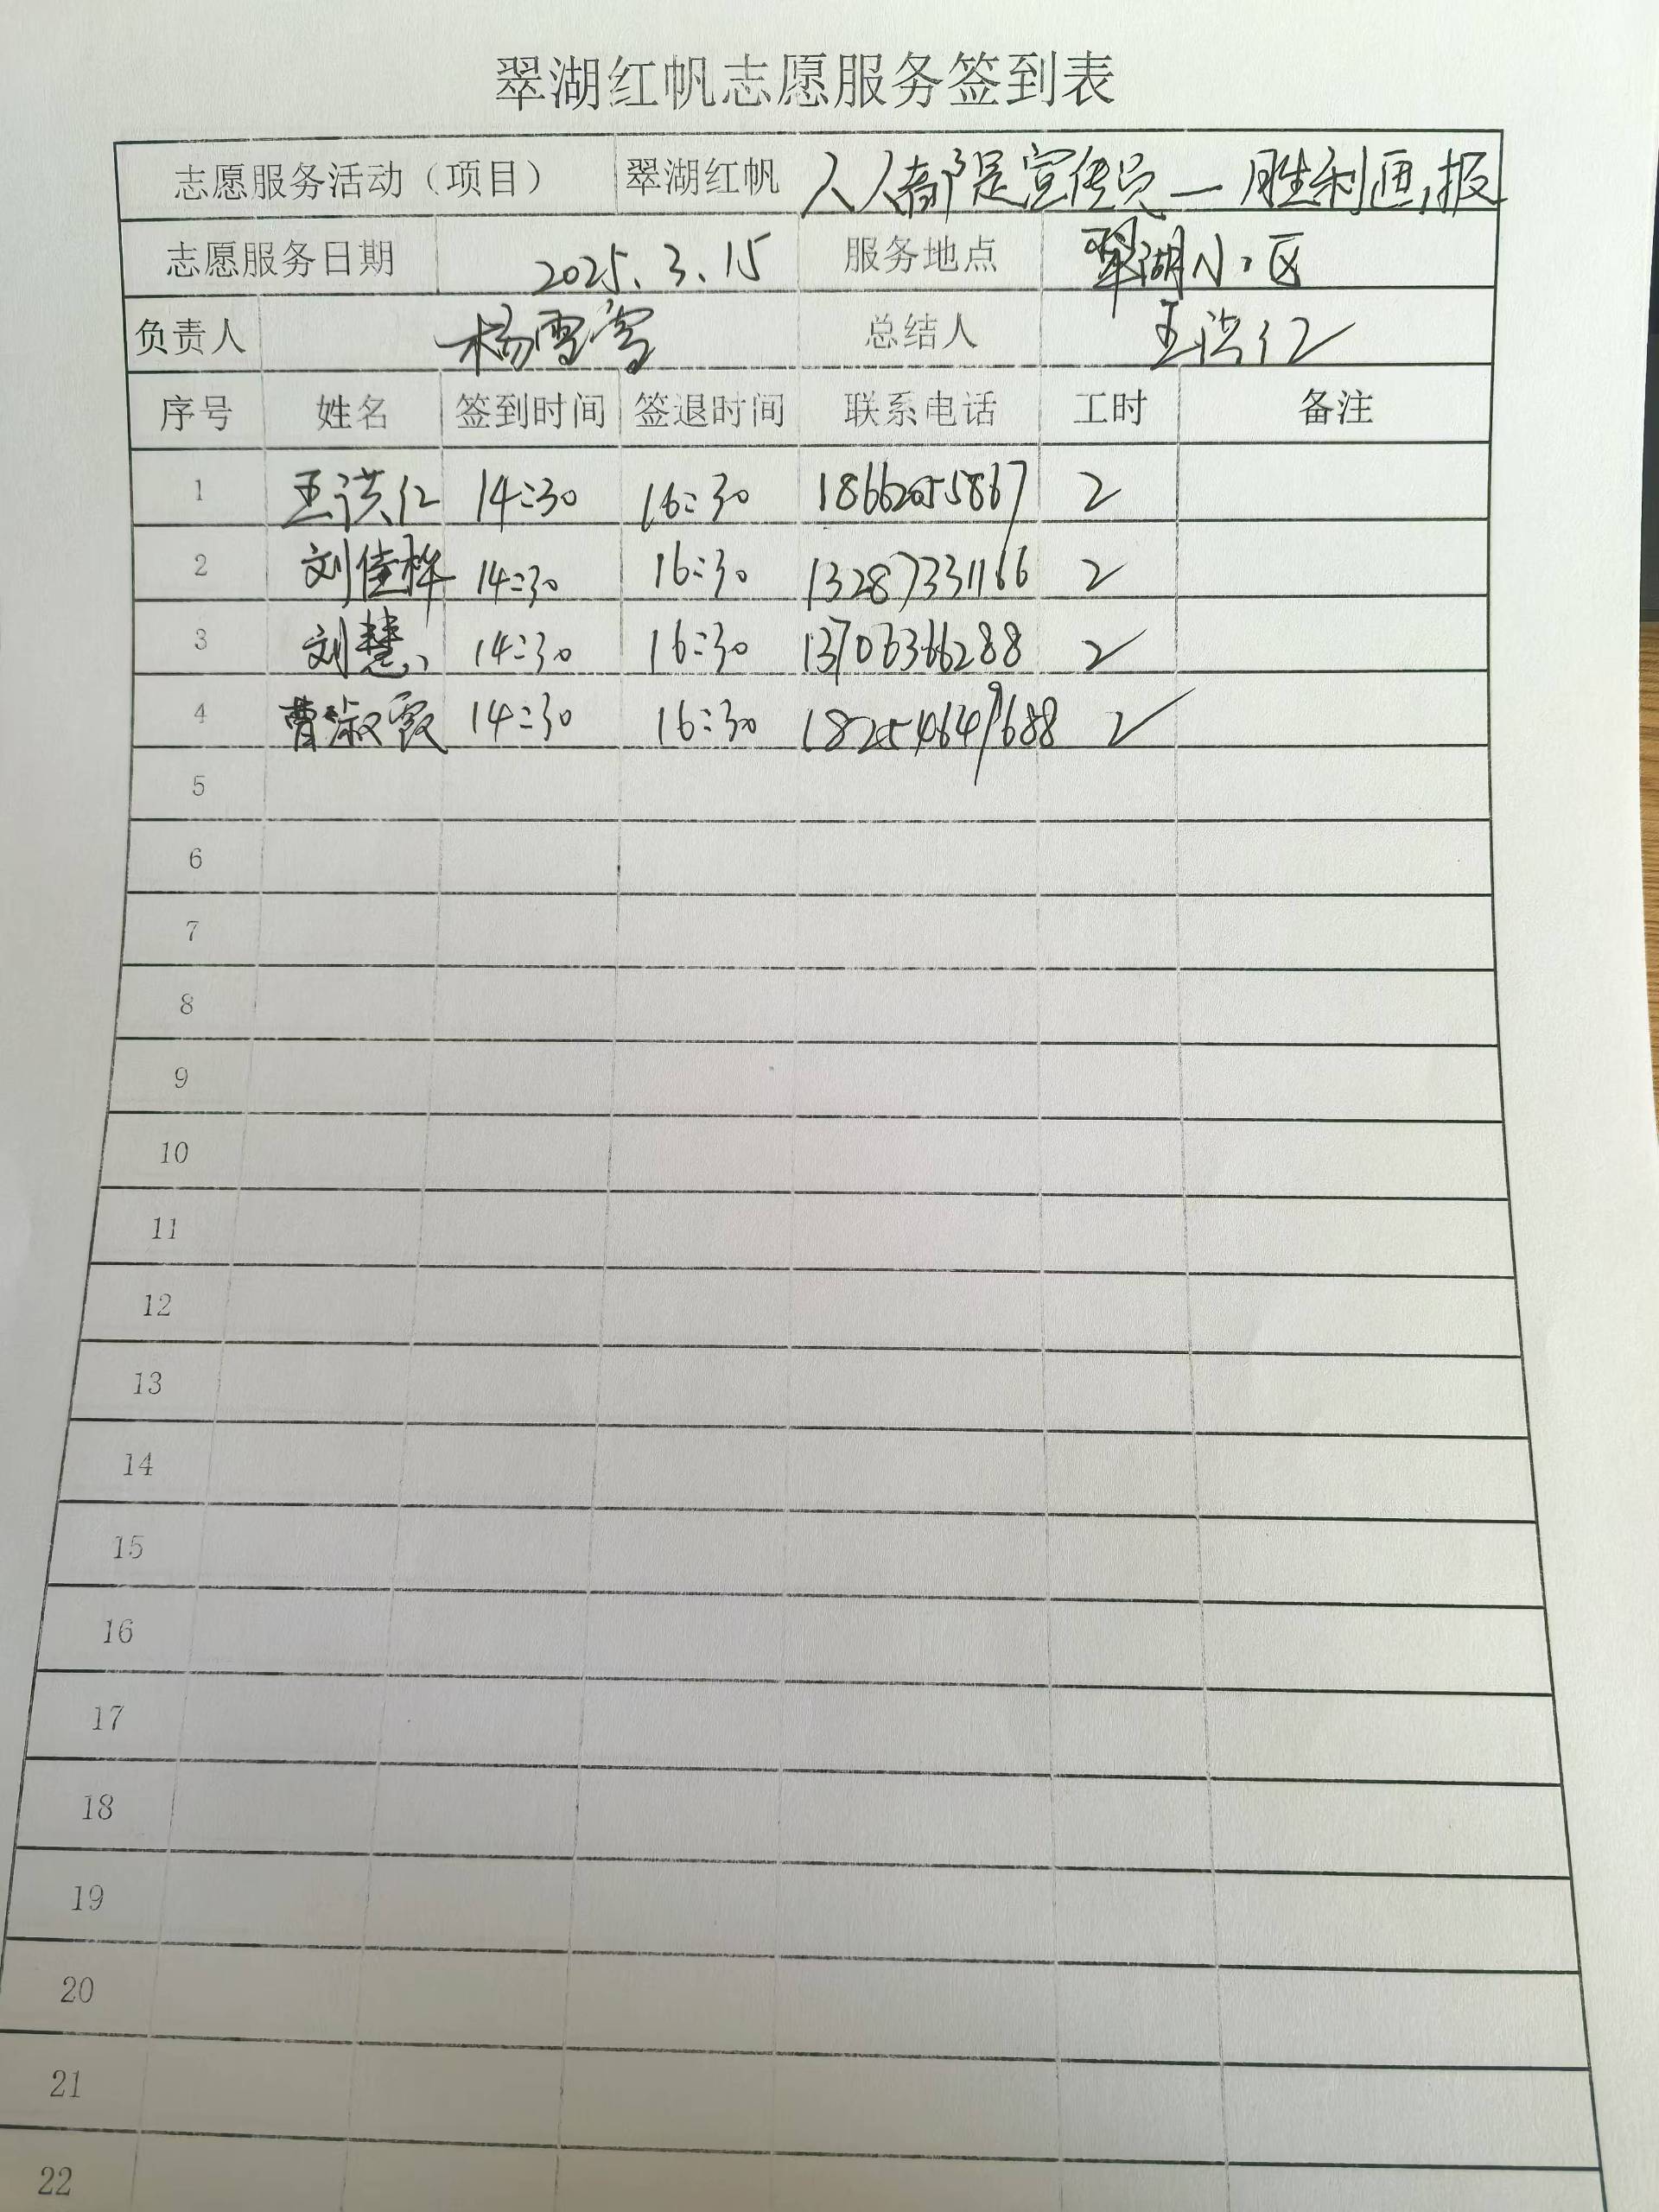 翠湖红帆志愿服务签到表
志愿服务活动（项目） 翠湖红帆 人人都是宣传员—胜利画报
志愿服务日期 2025.3.15 服务地点 翠湖小区
负责人 杨雪 总结人 王洪仁
序号 姓名 签到时间 签退时间 联系电话 工时 备注
1 王洪仁 14:30 16:30 18662055867 2
2 刘佳桦 14:30 16:30 13287331166 2
3 刘慧 14:30 16:30 13706366288 2
4 曹淑霞 14:30 16:30 18254649688 2
5
6
7
8
9
10
11
12
13
14
15
16
17
18
19
20
21
22